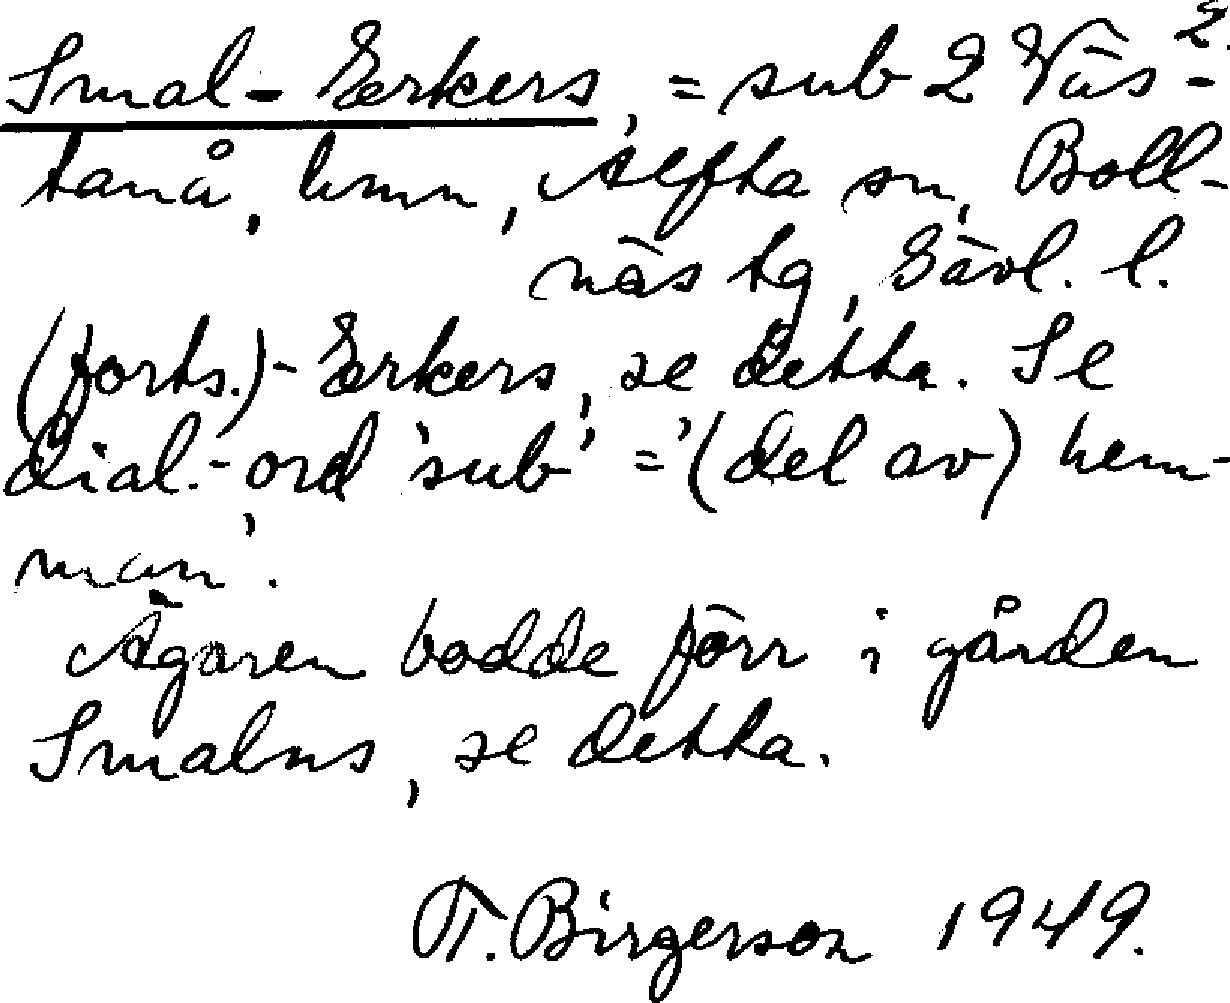 2.
Smal-Erkers, = sub 2 Väs-
tanå, hmn, Alfta sn, Boll-
näs tg, Gävl. l.
(forts.)- Erkers, se detta. Se
dial.-ord 'sub' = '(del av) hem-
man'.
Ägaren bodde förr i gården
Smalns, se detta.
T. Birgerson 1949.